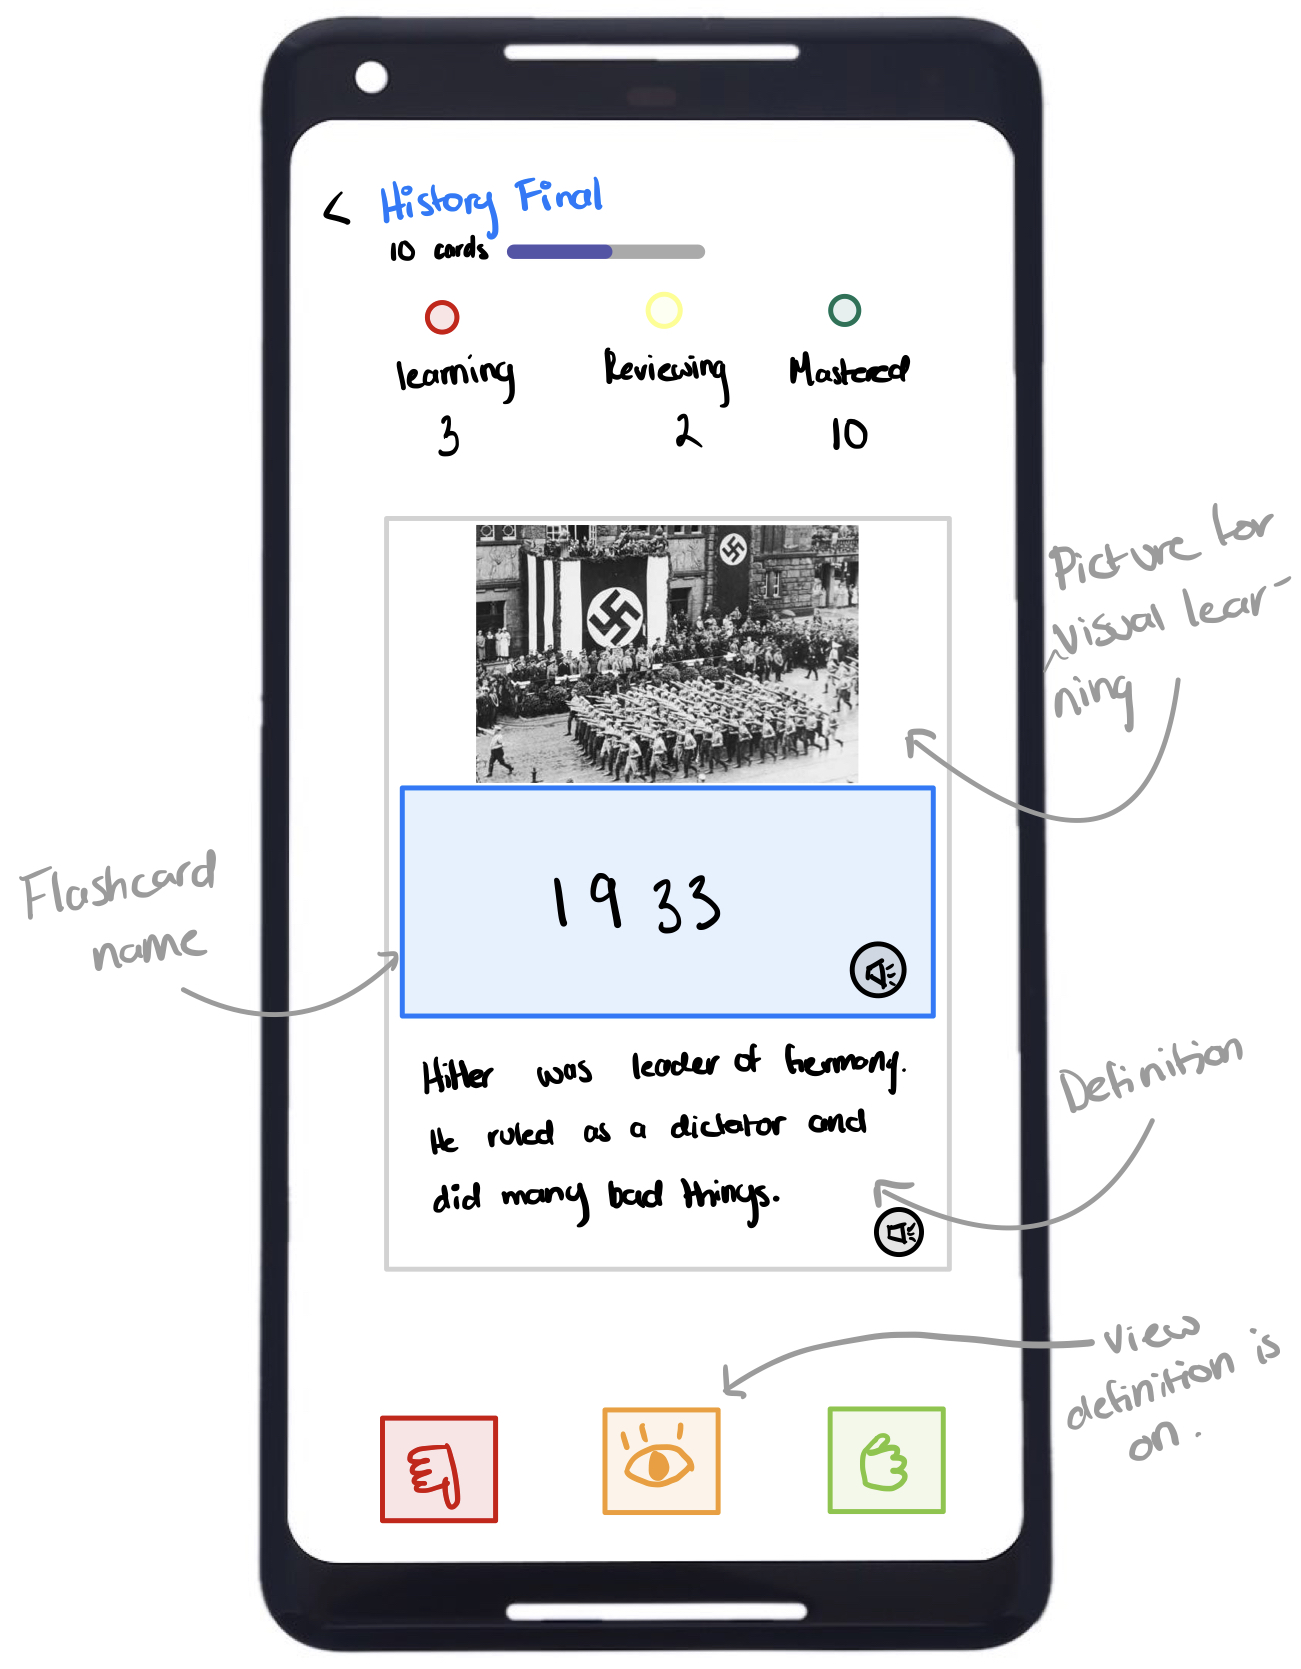 < History Final
10 cards
learning Reviewing Mastered
3 2 10
Picture for
visual lear-
ning
1933
Flashcard
name
Hitler was leader of Germany.
He ruled as a dictator and
did many bad things.
Definition
view
definition is
on.